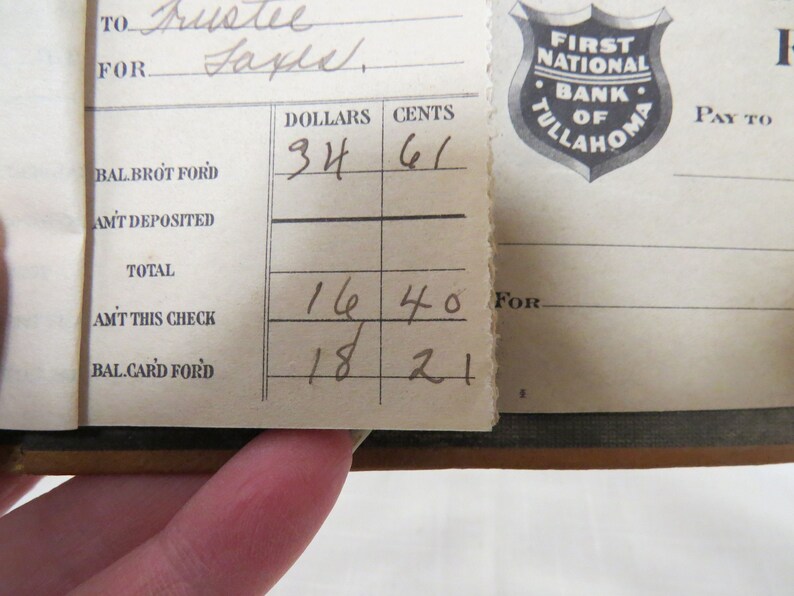 TO Trustee
FOR Taxes.
DOLLARS CENTS
BAL. BRO'T FOR'D 34 61
AM'T DEPOSITED
TOTAL
AM'T THIS CHECK 16 40
BAL. CAR'D FOR'D 18 21
FIRST
NATIONAL
BANK
OF
TULLAHOMA
PAY TO
FOR